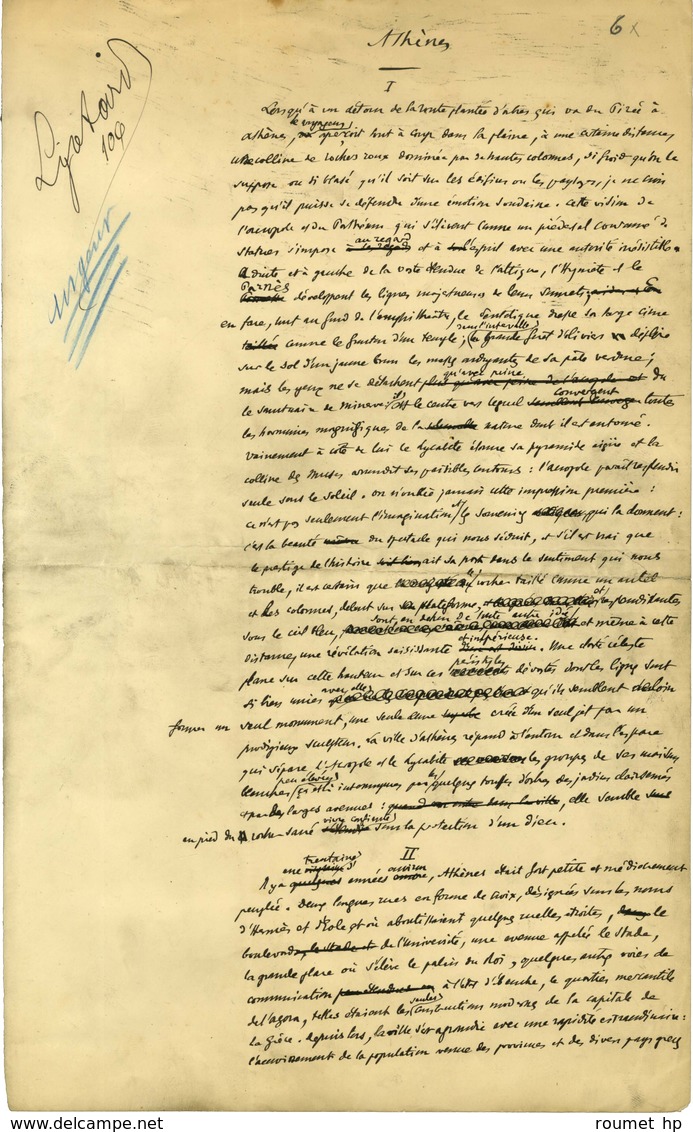 6 x
Athènes
Lyetard
106
urgent
I
Lorsqu'à un détour de la route plantée d'arbres qui va du Pirée à
Athènes, le voyageur aperçoit tout à coup dans la plaine, à une certaine distance,
une colline de roches roux dominée par de hautes colonnes, si froid qu'on le
suppose ou si blasé qu'il soit sur les édifices ou les paysages, je ne crois
pas qu'il puisse se défendre d'une émotion soudaine. Cette vision de
l'acropole et du Parthénon qui s'élèvent comme un piédestal couronné de
statues s'impose au regard et à l'esprit avec une autorité irrésistible.
A droite et à gauche de la vaste étendue de l'attique, l'Hymette et le
Parnès développent les lignes majestueuses de leurs sommets
en face, tout au fond de l'amphithéâtre, le Pentélique dresse sa large cime
comme le fronton d'un temple; dans l'intervalle la grande forêt d'oliviers déploie
sur le sol d'un jaune brun les masses ondoyantes de sa pâle verdure;
mais les yeux ne se détachent qu'avec peine du
le sanctuaire de Minerve est le centre vers lequel convergent toutes
les harmonies magnifiques de la nature dont il est entouré.
Vainement à côté de lui le Lycabète élance sa pyramide aigüe et la
colline des Muses arrondit ses paisibles contours: l'acropole paraît resplendir
seule sous le soleil. On n'oublie jamais cette impression première:
ce n'est pas seulement l'imagination et le souvenir qui la donnent:
c'est la beauté du spectacle qui nous séduit, et s'il est vrai que
le prestige de l'histoire ait sa part dans le sentiment qui nous
trouble, il est certain que le rocher taillé comme un autel
et les colonnes, debout sur sa plateforme, et resplendissantes
sous le ciel bleu, sont en dehors de toute autre idée et même à cette
distance, une révélation saisissante et impérieuse. Une clarté céleste
plane sur cette hauteur et sur ces péristyles dévastés dont les lignes sont
si bien unies avec elle qu'ils semblent de loin
former un seul monument, une seule âme créée d'un seul jet par un
prodigieux sculpteur. La ville d'Athènes répand à l'entour et dans l'espace
qui sépare l'Acropole et le Lycabète les groupes de ses maisons
blanches peu élevées et interrompues par quelques touffes d'arbres des jardins clairsemés
et par des larges avenues: elle semble
au pied du rocher sacré vivre confiante sous la protection d'un dieu.
II
Il y a une trentaine d'années environ, Athènes était fort petite et médiocrement
peuplée. Deux longues rues en forme de croix, désignées sous les noms
d'Hermès et d'Eole et où aboutissaient quelques ruelles étroites, le
boulevard de l'Université, une avenue appelée le Stade,
la grande place où s'élève le palais du Roi, quelques autres voies de
communication à l'état d'ébauche, le quartier mercantile
de l'agora, telles étaient les seules constructions modernes de la capitale de
la Grèce. Depuis lors, la ville s'est agrandie avec une rapidité extraordinaire:
l'accroissement de la population venue des provinces et des divers pays grecs
© roumet hp